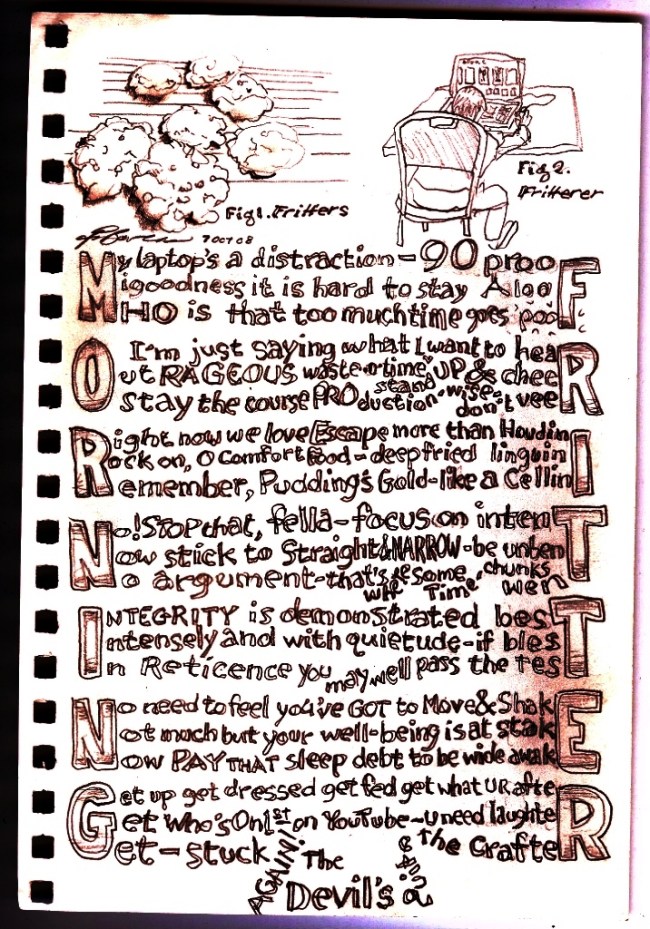 Fig 1. Fritters
Fig 2.
Fritterer
7 OCT 08
My laptop's a distraction - 90 prooF
Migoodness it is hard to stay AlooF
MHO is that too much time goes pooF
I'm just saying what I want to heaR
OutRAGEOUS waste-o-time, stand UP & cheeR
O stay the course PROduction-wise - don't veeR
Right now we love Escape more than HoudinI
Rock on, O Comfort Food - deep fried linguinI
Remember, Pudding's Gold - like a CellinI
No! Stop that, fella - focus on intenT
Now stick to Straight & NARROW - be untenT
No argument - that's where some Time chunks wenT
INTEGRITY is demonstrated besT
Intensely and with quietude - if blesT
In Reticence you may well pass the tesT
No need to feel you've GOT to Move & ShakE
Not much but your well-being is at stakE
Now PAY THAT sleep debt to be wide awakE
Get up get dressed get fed get what UR afteR
Get Who's On 1st on YouTube - U need laughteR
Get-stuck AGAIN! The Devil's a Band? The CrafteR